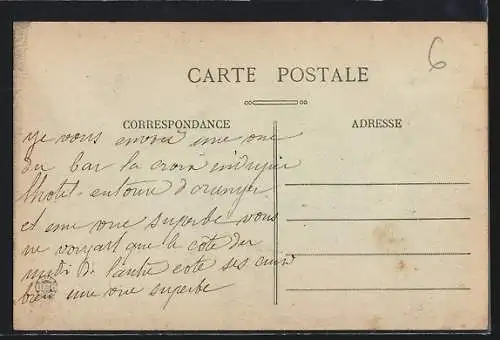 6
CARTE POSTALE
CORRESPONDANCE
ADRESSE
je vous envoie une vue
du bar la croix
l'hotel entouré d'oranger
et une vue superbe vous
ne voyant que le côte du
midi de l'autre cote ses
bien une vue superbe